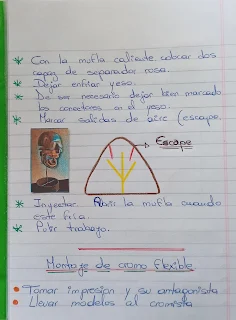 * Con la mufla caliente colocar dos
capas de separador rosa.
* Dejar enfriar yeso.
* De ser necesario dejar bien marcado
los conectores en el yeso.
* Marcar salidas de aire (escape.
Escape
* Inyectar. Abrir la mufla cuando
este fria.
* Pulir trabajo.
Montaje de cromo flexible
• Tomar impresion y su antagonista
• Llevar modelos al cromista